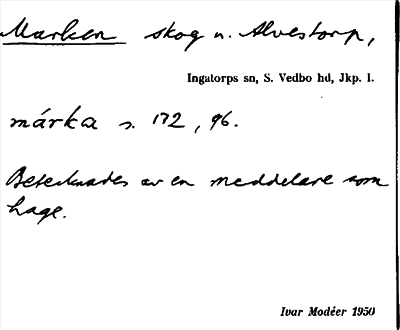 Marken skog u. Alvestorp,
Ingatorps sn, S. Vedbo hd, Jkp. l.
márka s. 172, 96.
Betecknades av en meddelare som
hage.
Ivar Modéer 1950